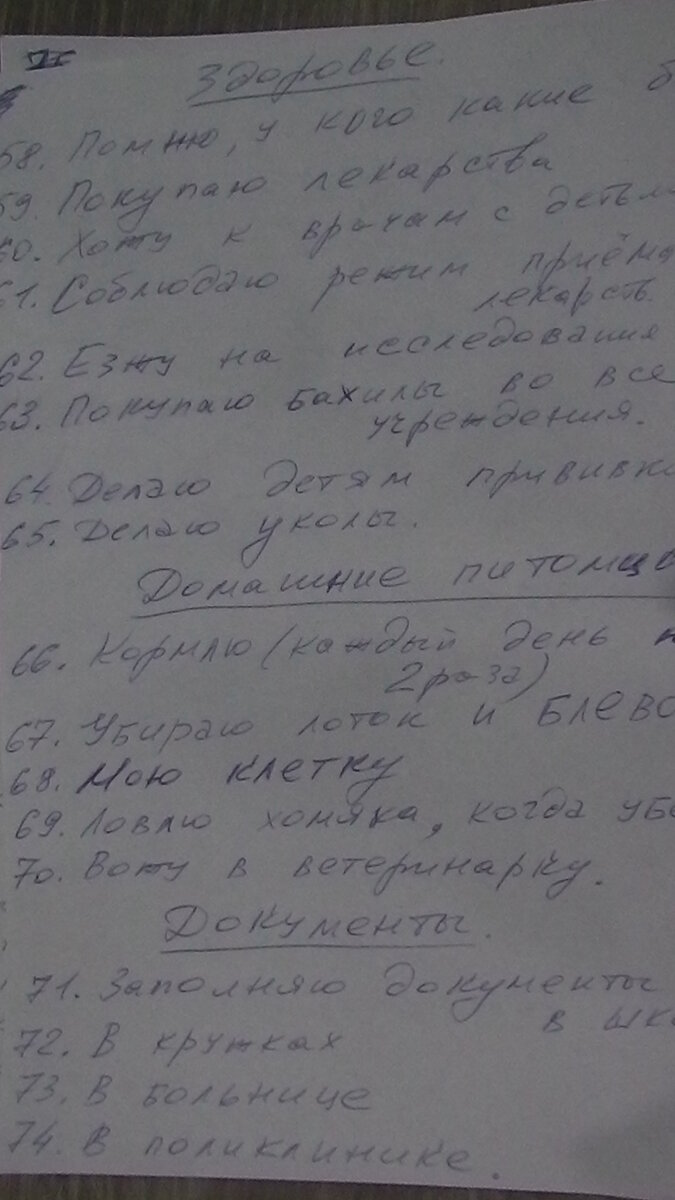 Здоровье.
58. Помню, у кого какие б
59. Покупаю лекарства
60. Хожу к врачам с детьм
61. Соблюдаю режим приёма
лекарств.
62. Езжу на исследования
63. Покупаю бахилы во все
учреждения.
64. Делаю детям прививк
65. Делаю уколы.
Домашние питомцы
66. Кормлю (каждый день
2 раза)
67. Убираю лоток и блево
68. Мою клетку
69. Ловлю хомяка, когда убе
70. Вожу в ветеринарку.
Документы.
71. Заполняю документы
в шко
72. В кружках
73. В больнице
74. В поликлинике.